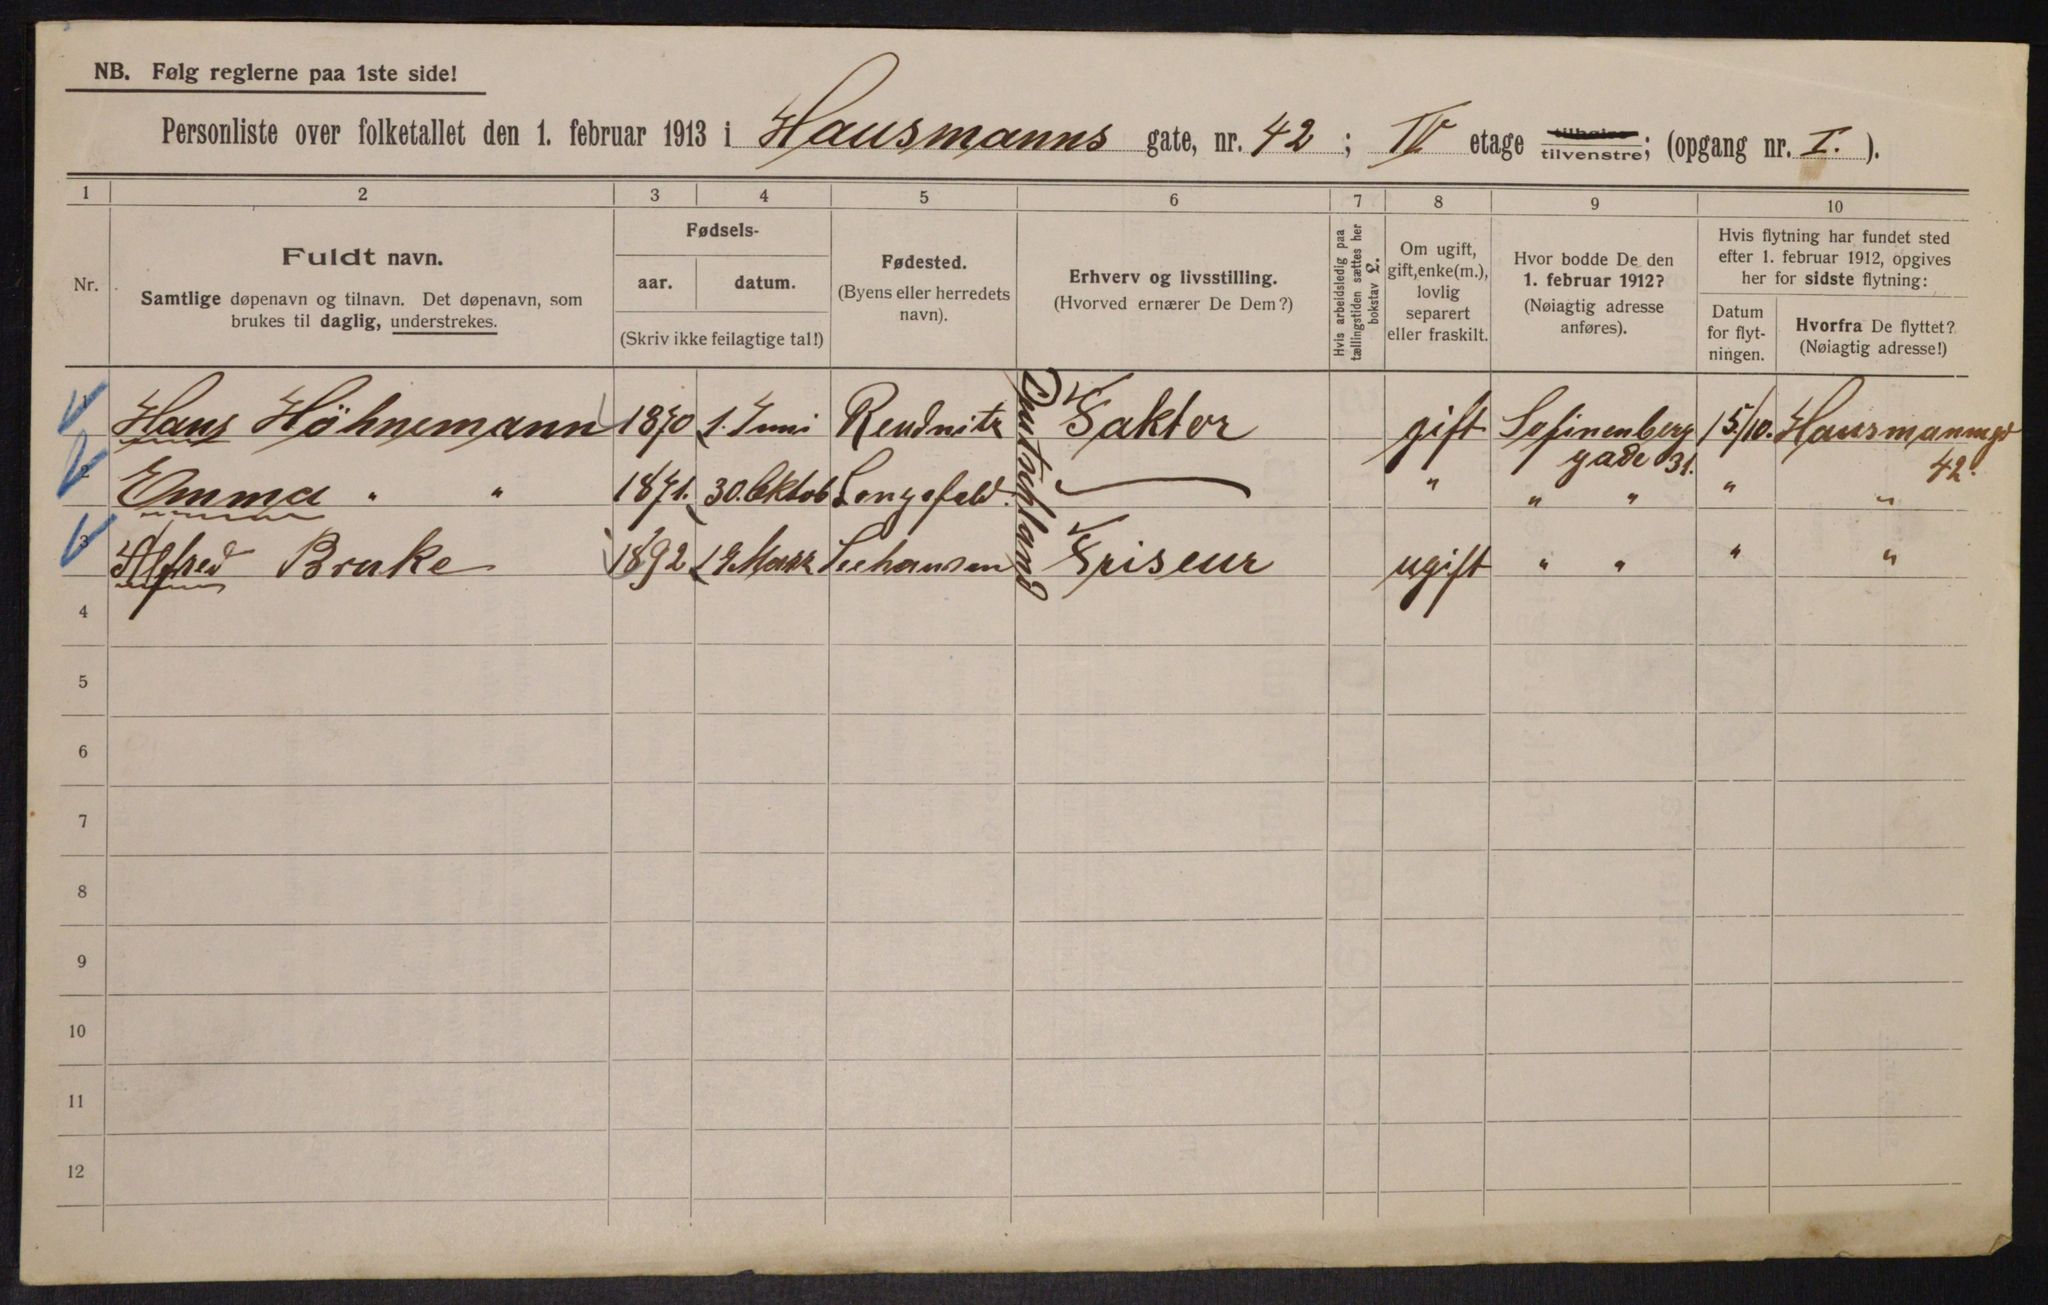 NB. Følg reglerne paa 1ste side!
Personliste over folketallet den 1. februar 1913 i Hausmanns gate, nr. 42 ; IV etage tilhøire tilvenstre; (opgang nr. I. ).
1 2 3 4 5 6 7 8 9 10
Nr.
Fuldt navn.
Samtlige døpenavn og tilnavn. Det døpenavn, som
brukes til daglig, understrekes.
Fødsels-
aar. datum.
(Skriv ikke feilagtige tal!)
Fødested.
(Byens eller herredets
navn).
Erhverv og livsstilling.
(Hvorved ernærer De Dem?)
Hvis arbeidsledig paa
tællingstiden sættes her
bokstav L.
Om ugift,
gift, enke(m.),
lovlig
separert
eller fraskilt.
Hvor bodde De den
1. februar 1912?
(Nøiagtig adresse
anføres).
Hvis flytning har fundet sted
efter 1. februar 1912, opgives
her for sidste flytning:
Datum
for flyt-
ningen.
Hvorfra De flyttet?
(Nøiagtig adresse!)
1 Hans Höhnemann 1870 1. Juni Reudnitz Faktor gift Sofinenberg 15/10. Hausmannsgd
gade 31. 42.
2 Emma " " 1871. 30. Oktob Lengefeld. " " " " "
3 Alfred Brake 1892 Seehausen Friseur ugift " " " "
Deutschland
4
5
6
7
8
9
10
11
12